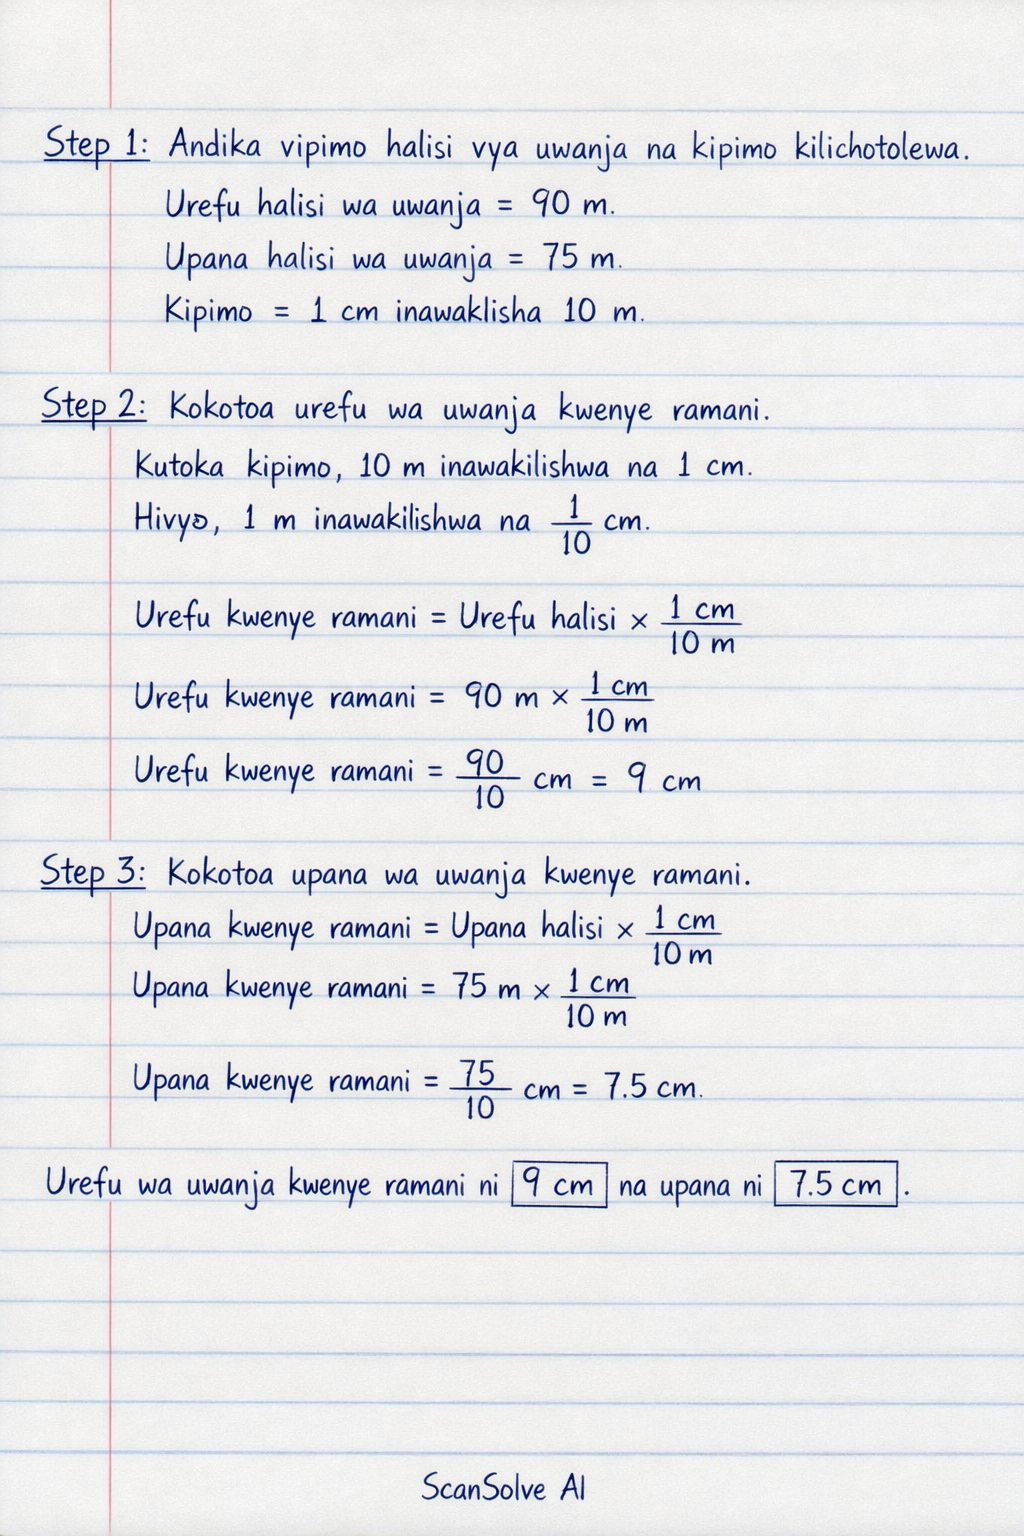 Step 1: Andika vipimo halisi vya uwanja na kipimo kilichotolewa.
Urefu halisi wa uwanja = 90 m.
Upana halisi wa uwanja = 75 m.
Kipimo = 1 cm inawaklisha 10 m.
Step 2: Kokotoa urefu wa uwanja kwenye ramani.
Kutoka kipimo, 10 m inawakilishwa na 1 cm.
Hivyo, 1 m inawakilishwa na 1/10 cm.
Urefu kwenye ramani = Urefu halisi × 1 cm/10 m
Urefu kwenye ramani = 90 m × 1 cm/10 m
Urefu kwenye ramani = 90/10 cm = 9 cm
Step 3: Kokotoa upana wa uwanja kwenye ramani.
Upana kwenye ramani = Upana halisi × 1 cm/10 m
Upana kwenye ramani = 75 m × 1 cm/10 m
Upana kwenye ramani = 75/10 cm = 7.5 cm.
Urefu wa uwanja kwenye ramani ni 9 cm na upana ni 7.5 cm.
ScanSolve AI